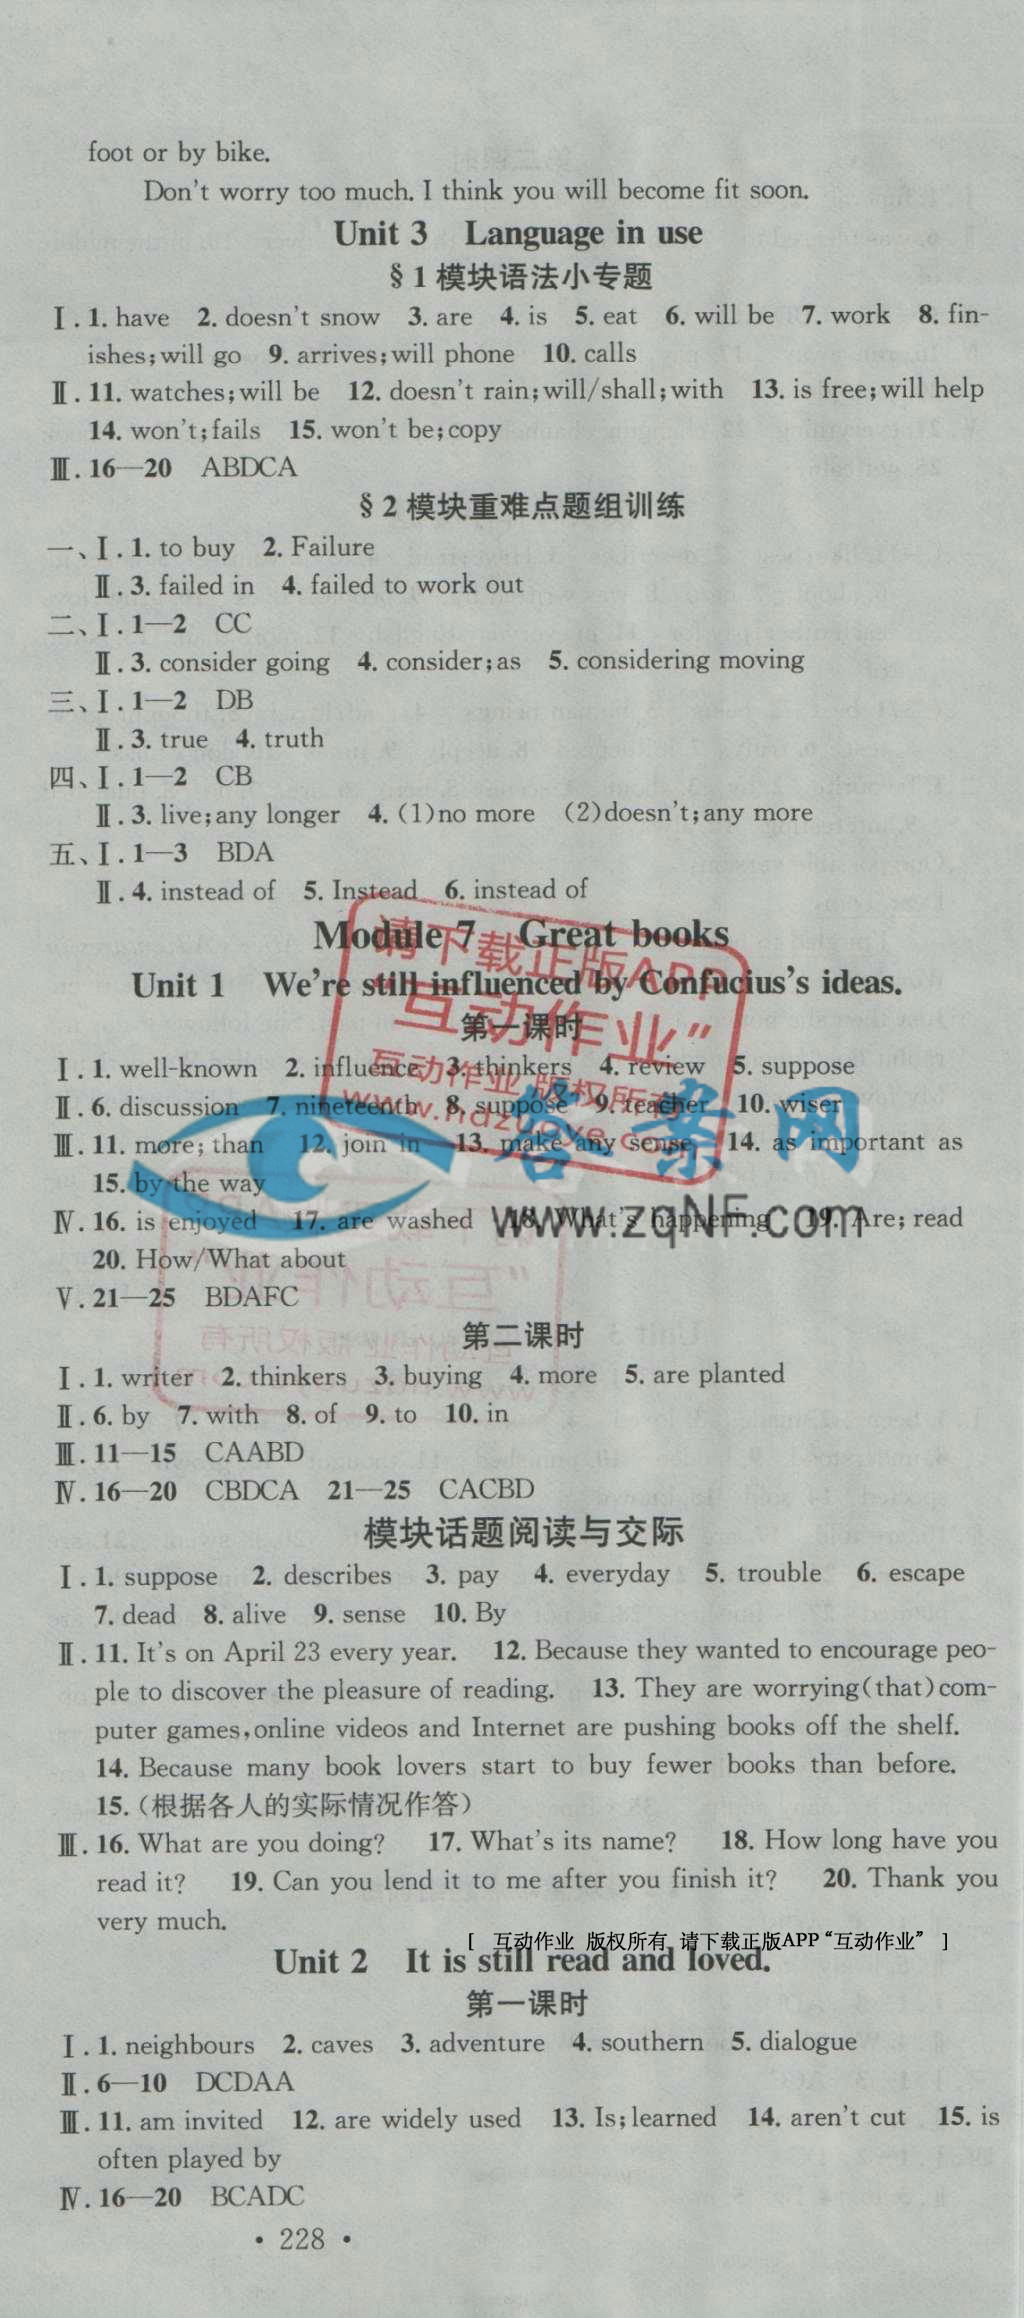 foot or by bike.
Don't worry too much. I think you will become fit soon.
Unit 3 Language in use
§1模块语法小专题
Ⅰ. 1. have 2. doesn't snow 3. are 4. is 5. eat 6. will be 7. work 8. fin-
ishes; will go 9. arrives; will phone 10. calls
Ⅱ. 11. watches; will be 12. doesn't rain; will/shall; with 13. is free; will help
14. won't; fails 15. won't be; copy
Ⅲ. 16—20 ABDCA
§2模块重难点题组训练
一、Ⅰ. 1. to buy 2. Failure
Ⅱ. 3. failed in 4. failed to work out
二、Ⅰ. 1—2 CC
Ⅱ. 3. consider going 4. consider; as 5. considering moving
三、Ⅰ. 1—2 DB
Ⅱ. 3. true 4. truth
四、Ⅰ. 1—2 CB
Ⅱ. 3. live; any longer 4. (1)no more (2)doesn't; any more
五、Ⅰ. 1—3 BDA
Ⅱ. 4. instead of 5. Instead 6. instead of
Module 7 Great books
请下载正版APP
Unit 1 We're still influenced by Confucius's ideas.
“互动作业”
第一课时
Ⅰ. 1. well-known 2. influence 3. thinkers 4. review 5. suppose
互动作业 版权所有
Ⅱ. 6. discussion 7. nineteenth 8. suppose 9. teacher 10. wiser
答案网
Ⅲ. 11. more; than 12. join in 13. make any sense 14. as important as
15. by the way
Ⅳ. 16. is enjoyed 17. are washed 18. What's happening 19. Are; read
www.zqNF.com
20. How/What about
Ⅴ. 21—25 BDAFC
第二课时
Ⅰ. 1. writer 2. thinkers 3. buying 4. more 5. are planted
Ⅱ. 6. by 7. with 8. of 9. to 10. in
Ⅲ. 11—15 CAABD
Ⅳ. 16—20 CBDCA 21—25 CACBD
模块话题阅读与交际
Ⅰ. 1. suppose 2. describes 3. pay 4. everyday 5. trouble 6. escape
7. dead 8. alive 9. sense 10. By
Ⅱ. 11. It's on April 23 every year. 12. Because they wanted to encourage peo-
ple to discover the pleasure of reading. 13. They are worrying(that)com-
puter games, online videos and Internet are pushing books off the shelf.
14. Because many book lovers start to buy fewer books than before.
15. (根据各人的实际情况作答)
Ⅲ. 16. What are you doing? 17. What's its name? 18. How long have you
read it? 19. Can you lend it to me after you finish it? 20. Thank you
very much.
[ 互动作业 版权所有 请下载正版APP“互动作业” ]
Unit 2 It is still read and loved.
第一课时
Ⅰ. 1. neighbours 2. caves 3. adventure 4. southern 5. dialogue
Ⅱ. 6—10 DCDAA
Ⅲ. 11. am invited 12. are widely used 13. Is; learned 14. aren't cut 15. is
often played by
Ⅳ. 16—20 BCADC
· 228 ·